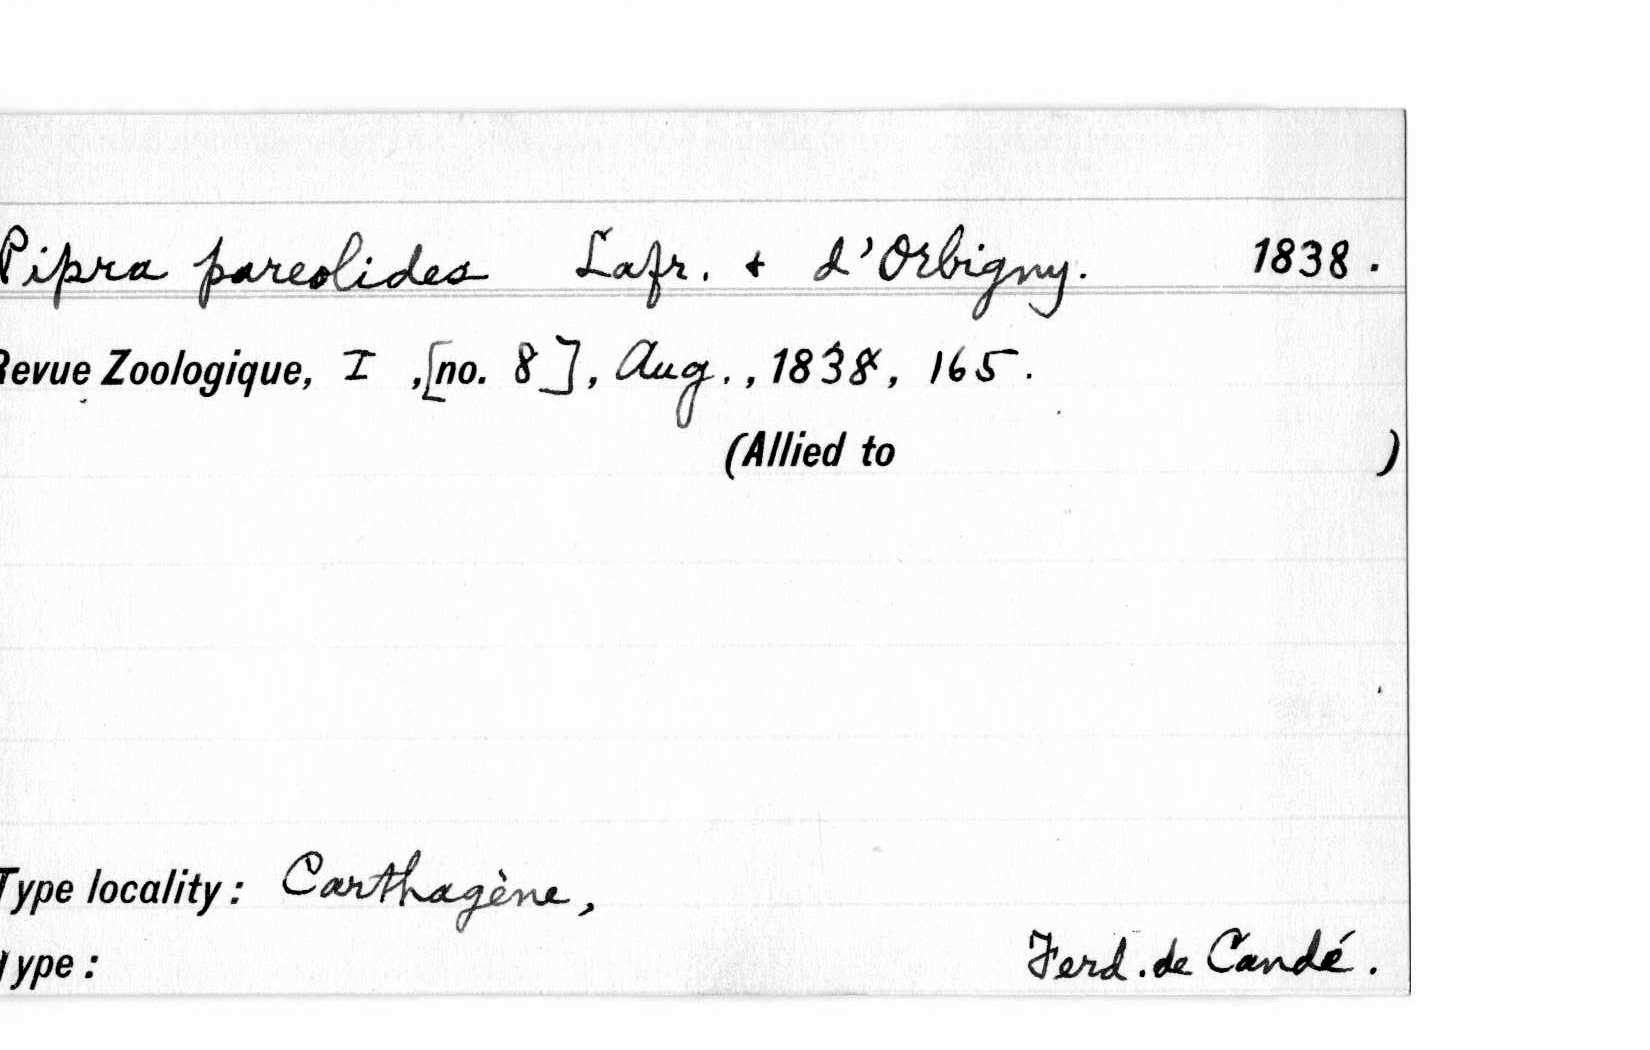 Pipra pareolides Lafr. & d'Orbigny. 1838.
Revue Zoologique, I, [no. 8], Aug., 1838, 165.
(Allied to )
Type locality: Carthagène,
Type: Ferd. de Candé.